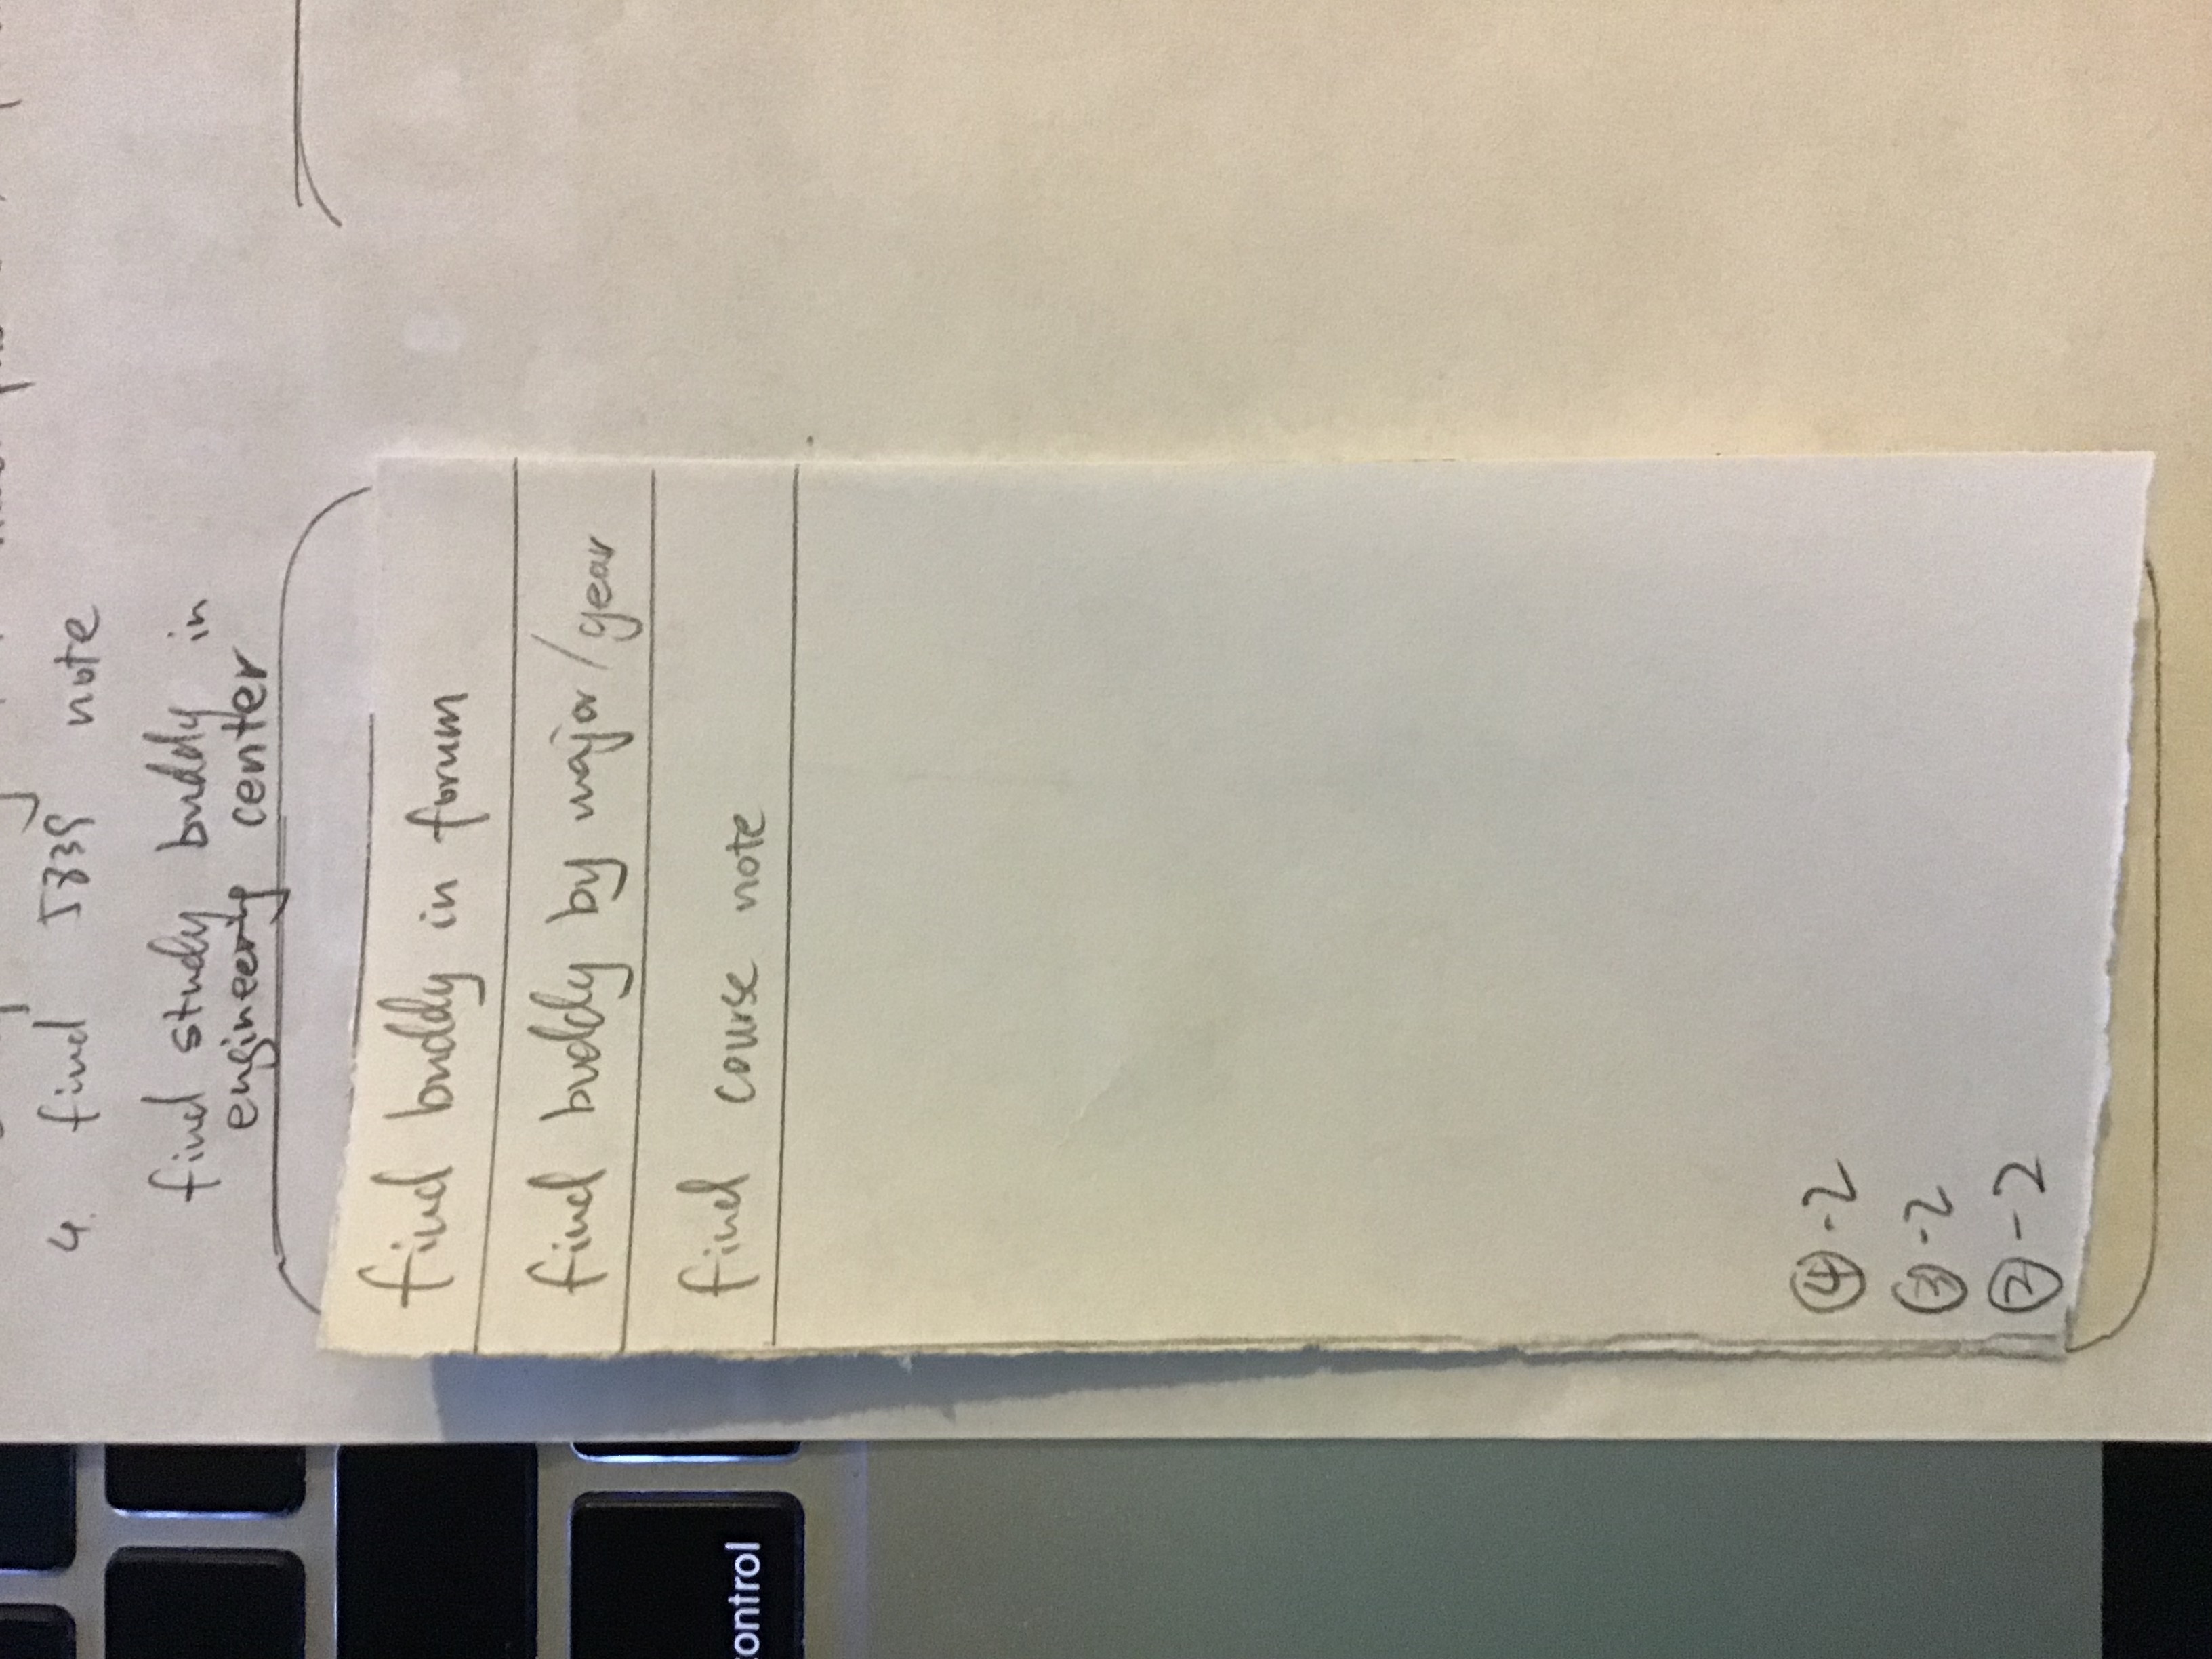 4. find 5839 note
find study buddy in
engineering center
find buddy in forum
find buddy by major/year
find course note
control
④-2
③-2
②-2